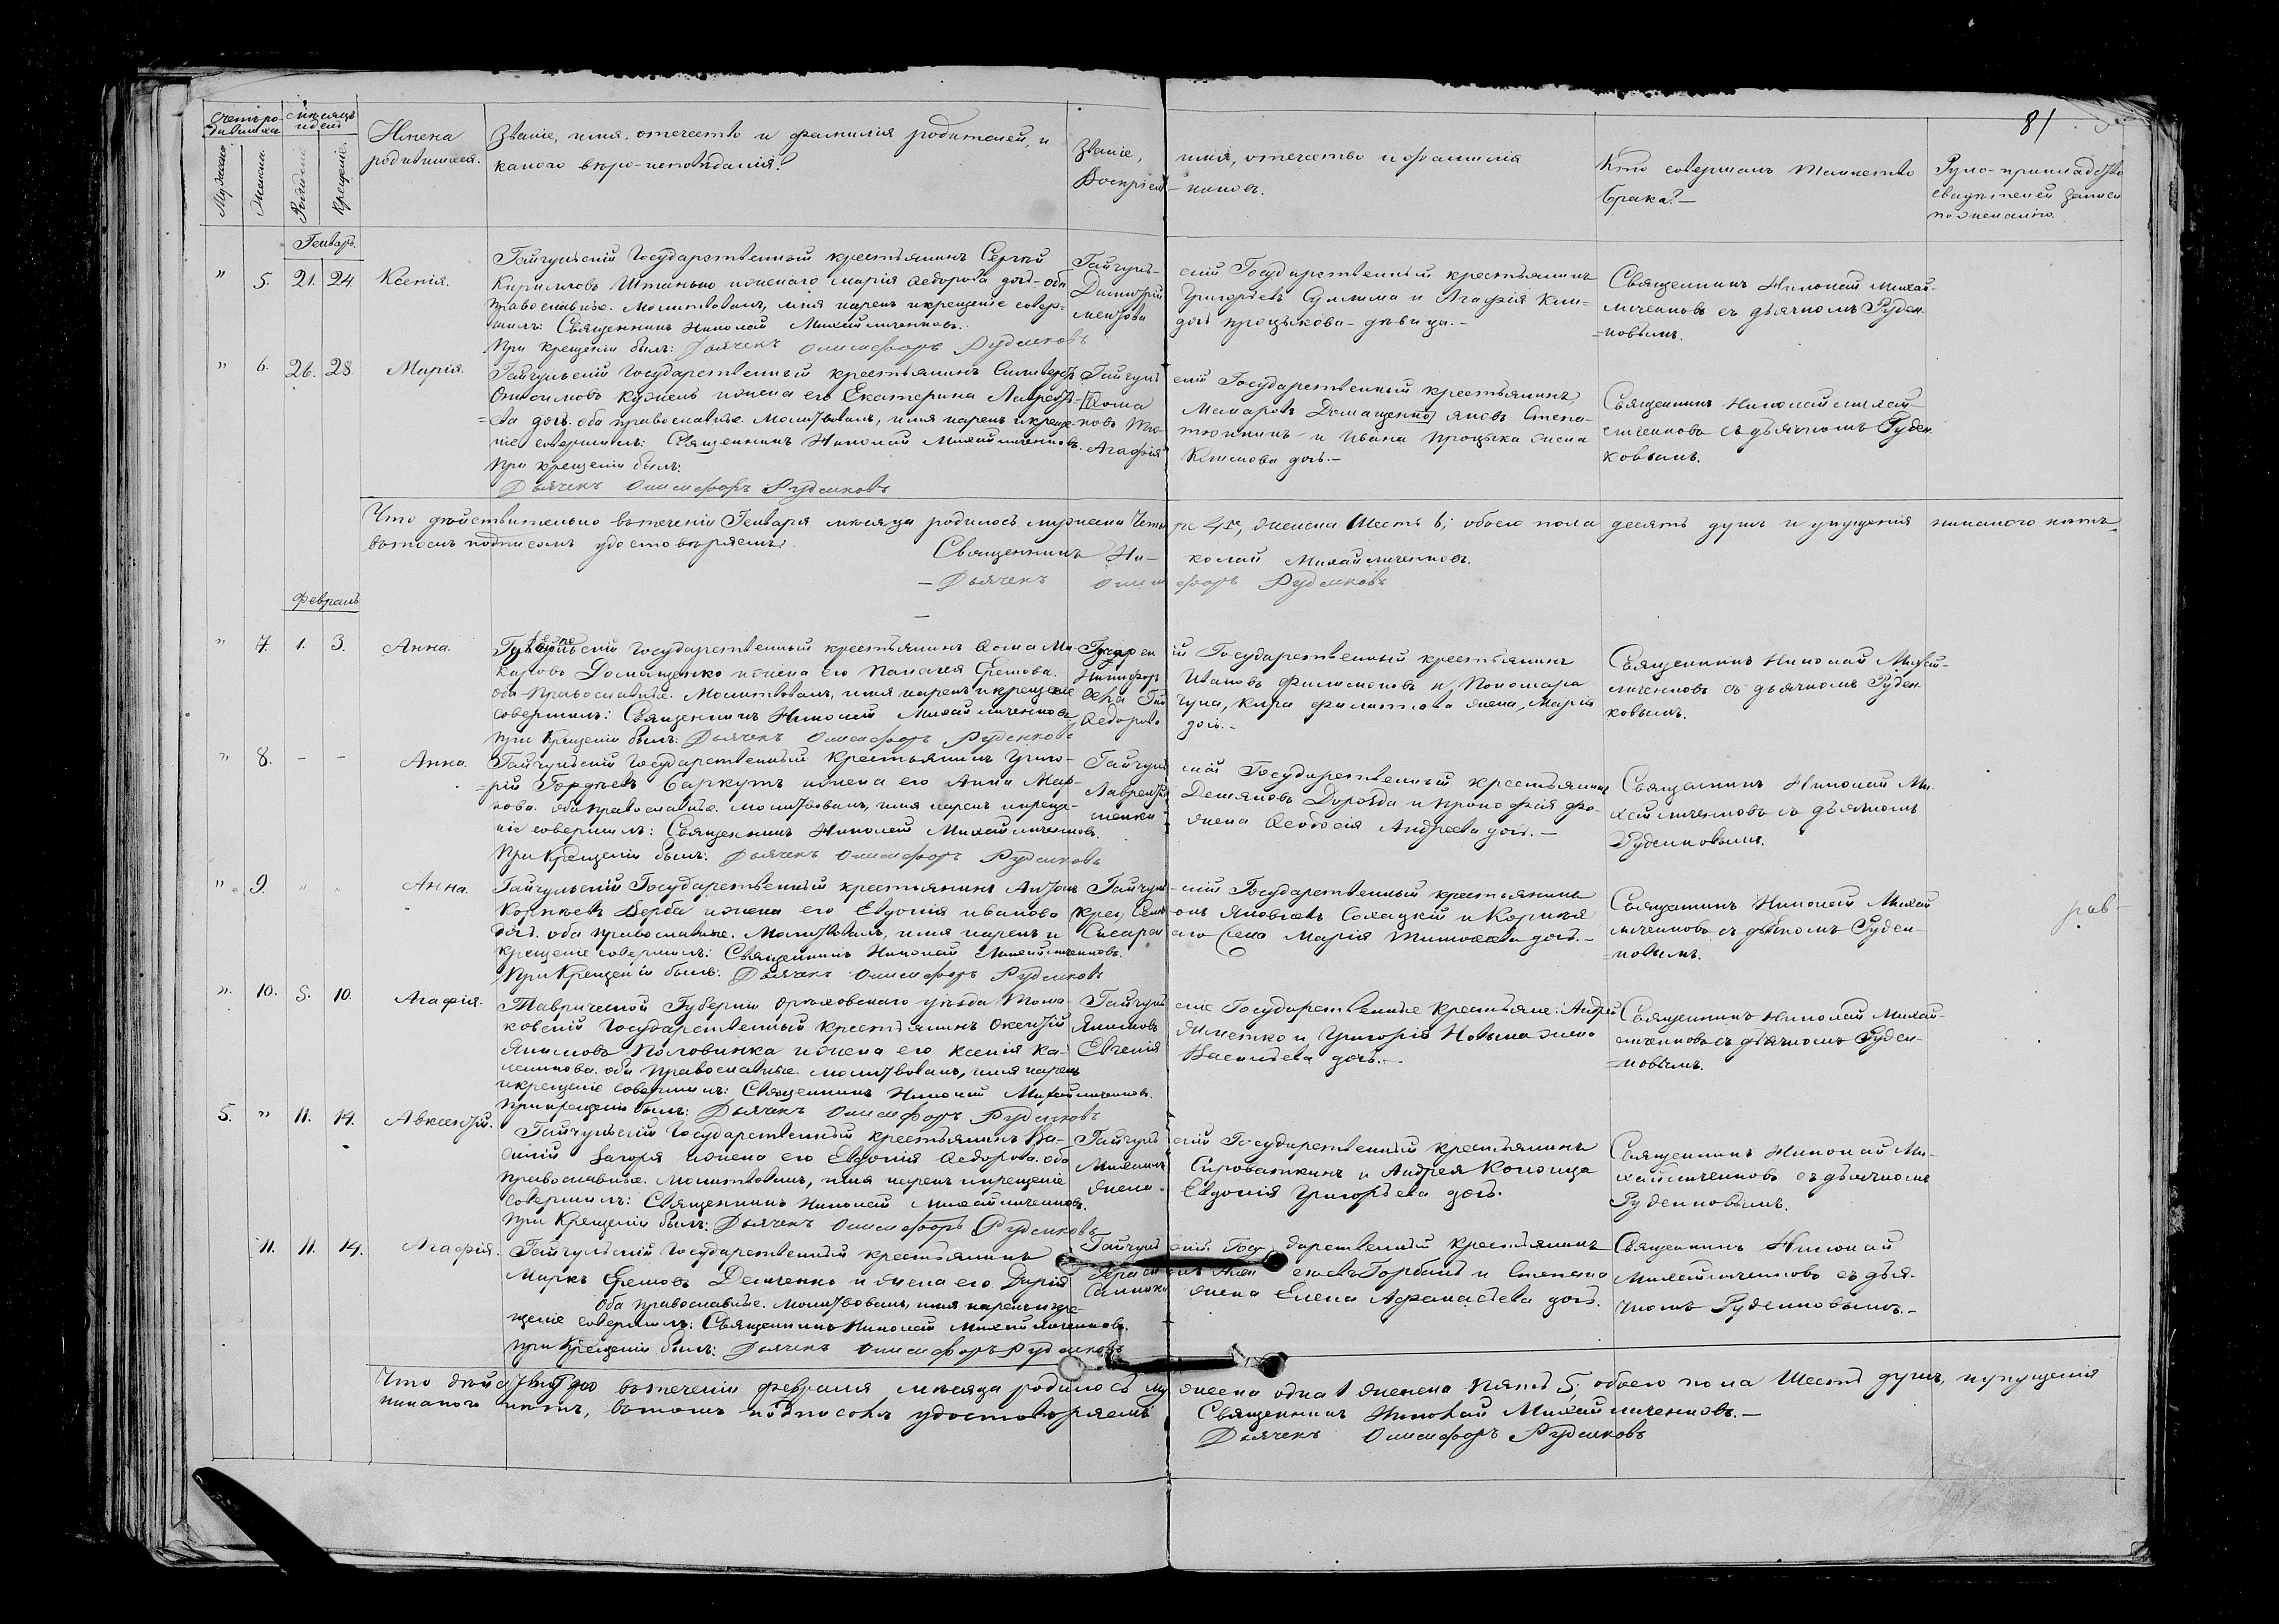 81
Счетъ ро-
дившихся
Мужеска.
Женска.
Мѣсяцъ
и день
Рожденіе
Крещеніе.
Имена
родившихся.
Званіе, имя, отечество и фамилія родителей, и
какого вѣро-исповѣданія?
Званіе, имя, отечество и фамилія
Воспріем-никовъ.
Кто совершалъ Таинство
брака?—
свидѣтелей записи
по желанію.
Генварь.
" 5. 21. 24. Ксенія.
Гайчульскій Государственный крестьянинъ Сергій
Кирилловъ и жена его Марія Ѳедорова дочь оба
православные. Молитвовалъ, имя нарекъ и крещеніе совер-
шилъ: Священникъ Николай Михайличенковъ.
При крещеніи былъ: Дьячекъ Онисифоръ Руденковъ
Гайчуль-скій Государственный крестьянинъ
Дмитрій Григорьевъ и Агафія Кли-
ментова дочь Процькова-дѣвица.-
Священникъ Николай Михай-
личенковъ съ дьячкомъ Руден-
=ковымъ.
" 6. 26. 28. Марія.
Гайчульскій Государственный крестьянинъ
Онисимовъ и жена его Екатерина Лаврентъ-
=ева дочь. оба православные. Молитвовалъ, имя нарекъ и креще-
ніе совершилъ: Священникъ Николай Михайличенковъ.
При крещеніи былъ:
Дьячекъ Онисифоръ Руденковъ
Гайчуль-скій Государственный крестьянинъ
Ѳома Макаровъ Домащенко
и Ивана Процька жена
Агафія Климова дочь.-
Священникъ Николай Михай-
личенковъ съ дьячкомъ Руден-
ковымъ.
Что дѣйствительно въ теченіи Генваря мѣсяца родилось мужеска Четы-ре 4ре, женска Шесть 6; обоего пола десять душъ и упущенія никакого нѣтъ,
въ томъ подписомъ удостовѣряемъ.
Священникъ Ни-колай Михайличенковъ.
Дьячекъ Онисифоръ Руденковъ
Февраль
" 7. 1. 3. Анна.
Государственный крестьянинъ Ѳома Ма-
каровъ Домащенко и жена его Пелагея Ефимова.
оба Православные. Молитвовалъ, имя нарекъ и крещеніе
совершилъ: Священникъ Николай Михайличенковъ
При Крещеніи былъ: Дьячекъ Онисифоръ Руденковъ
Государственный крестьянинъ
Никифоръ Ивановъ Филимоновъ и Пономаря
жена, Марія
Ѳедорова дочь.-
Священникъ Николай Михай-
личенковъ съ дьячкомъ Руден-
ковымъ.
" 8. - - Анна.
Гайчульскій Государственный Крестьянинъ Григо-
=рій Гордѣевъ Баркутъ и жена его Анна Мар-
кова. оба православные. Молитвовалъ, имя нарекъ и креще-
ніе совершилъ: Священникъ Николай Михайличенковъ.
При Крещеніи былъ: Дьячекъ Онисифоръ Руденковъ
Гайчуль-скій Государственный крестьянинъ
Лаврентій Демяновъ Дорозда и
жена Ѳеодосія Андреева дочь.-
Священникъ Николай Ми-
хайличенковъ съ дьячкомъ
Руденковымъ.
" 9. " " Анна.
Гайчульскій Государственный крестьянинъ Антонъ
Корнѣевъ Верба и жена его Евдокія Иванова
дочь. оба православные. Молитвовалъ, имя нарекъ и
крещеніе совершилъ: Священникъ Николай Михайличенковъ.
При Крещеніи былъ: Дьячекъ Онисифоръ Руденковъ
Гайчуль-скій Государственный крестьянинъ
Яковлевъ и Корнѣя
жена Марія Тимоѳеева дочь.-
Священникъ Николай Михай-
личенковъ съ дьячкомъ Руден-
=ковымъ.
" 10. 5. 10. Агафія.
Таврической Губерніи Орѣховскаго уѣзда Тома-
ковскій Государственный Крестьянинъ
Якимовъ Половинка и жена его Ксенія Ка-
ленникова. оба православные. молитвовалъ, имя нарекъ
и крещеніе совершилъ: Священникъ Николай Михайличенковъ.
При крещеніи былъ: Дьячекъ Онисифоръ Руденковъ
Гайчуль-скіе Государственные Крестьяне: Андрей
Якимовъ и Григорія жена
Евгенія Васильева дочь.-
Священникъ Николай Михай-
личенковъ съ дьячкомъ Руден-
=ковымъ.
5. " 11. 14. Авксентій.
Гайчульскій Государственный крестьянинъ Ва-
силій Загоря и жена его Евдокія Ѳедорова. оба
православные. Молитвовалъ, имя нарекъ и крещеніе
совершилъ: Священникъ Николай Михайличенковъ.
При Крещеніи былъ: Дьячекъ Онисифоръ Руденковъ
Гайчуль-скій Государственный крестьянинъ
Сироваткинъ и Андрея Коноща
жена Евдокія Григорьева дочь.
Священникъ Николай Ми-
хайличенковъ съ дьячкомъ
Руденковымъ.
11. 11. 14. Агафія.
Гайчульскій Государственный крестьянинъ
Маркъ Ефимовъ Демченко и жена его Дарія
Оба православные. молитвовалъ, имя нарекъ и кре-
щеніе совершилъ: Священникъ Николай Михайличенковъ.
При Крещеніи былъ: Дьячекъ Онисифоръ Руденковъ
Гайчуль-скій Государственный крестьянинъ
Горбань и Степана
жена Елена Аѳанасьева дочь.
Священникъ Николай
Михайличенковъ съ дья-
чкомъ Руденковымъ.-
Что дѣйствительно въ теченіи Февраля мѣсяца родилось му-жеска одна 1 женска Пять 5; обоего пола Шесть душъ, и упущенія
никакого нѣтъ, въ томъ подписомъ удостовѣряемъ
Священникъ Николай Михайличенковъ.-
Дьячекъ Онисифоръ Руденковъ